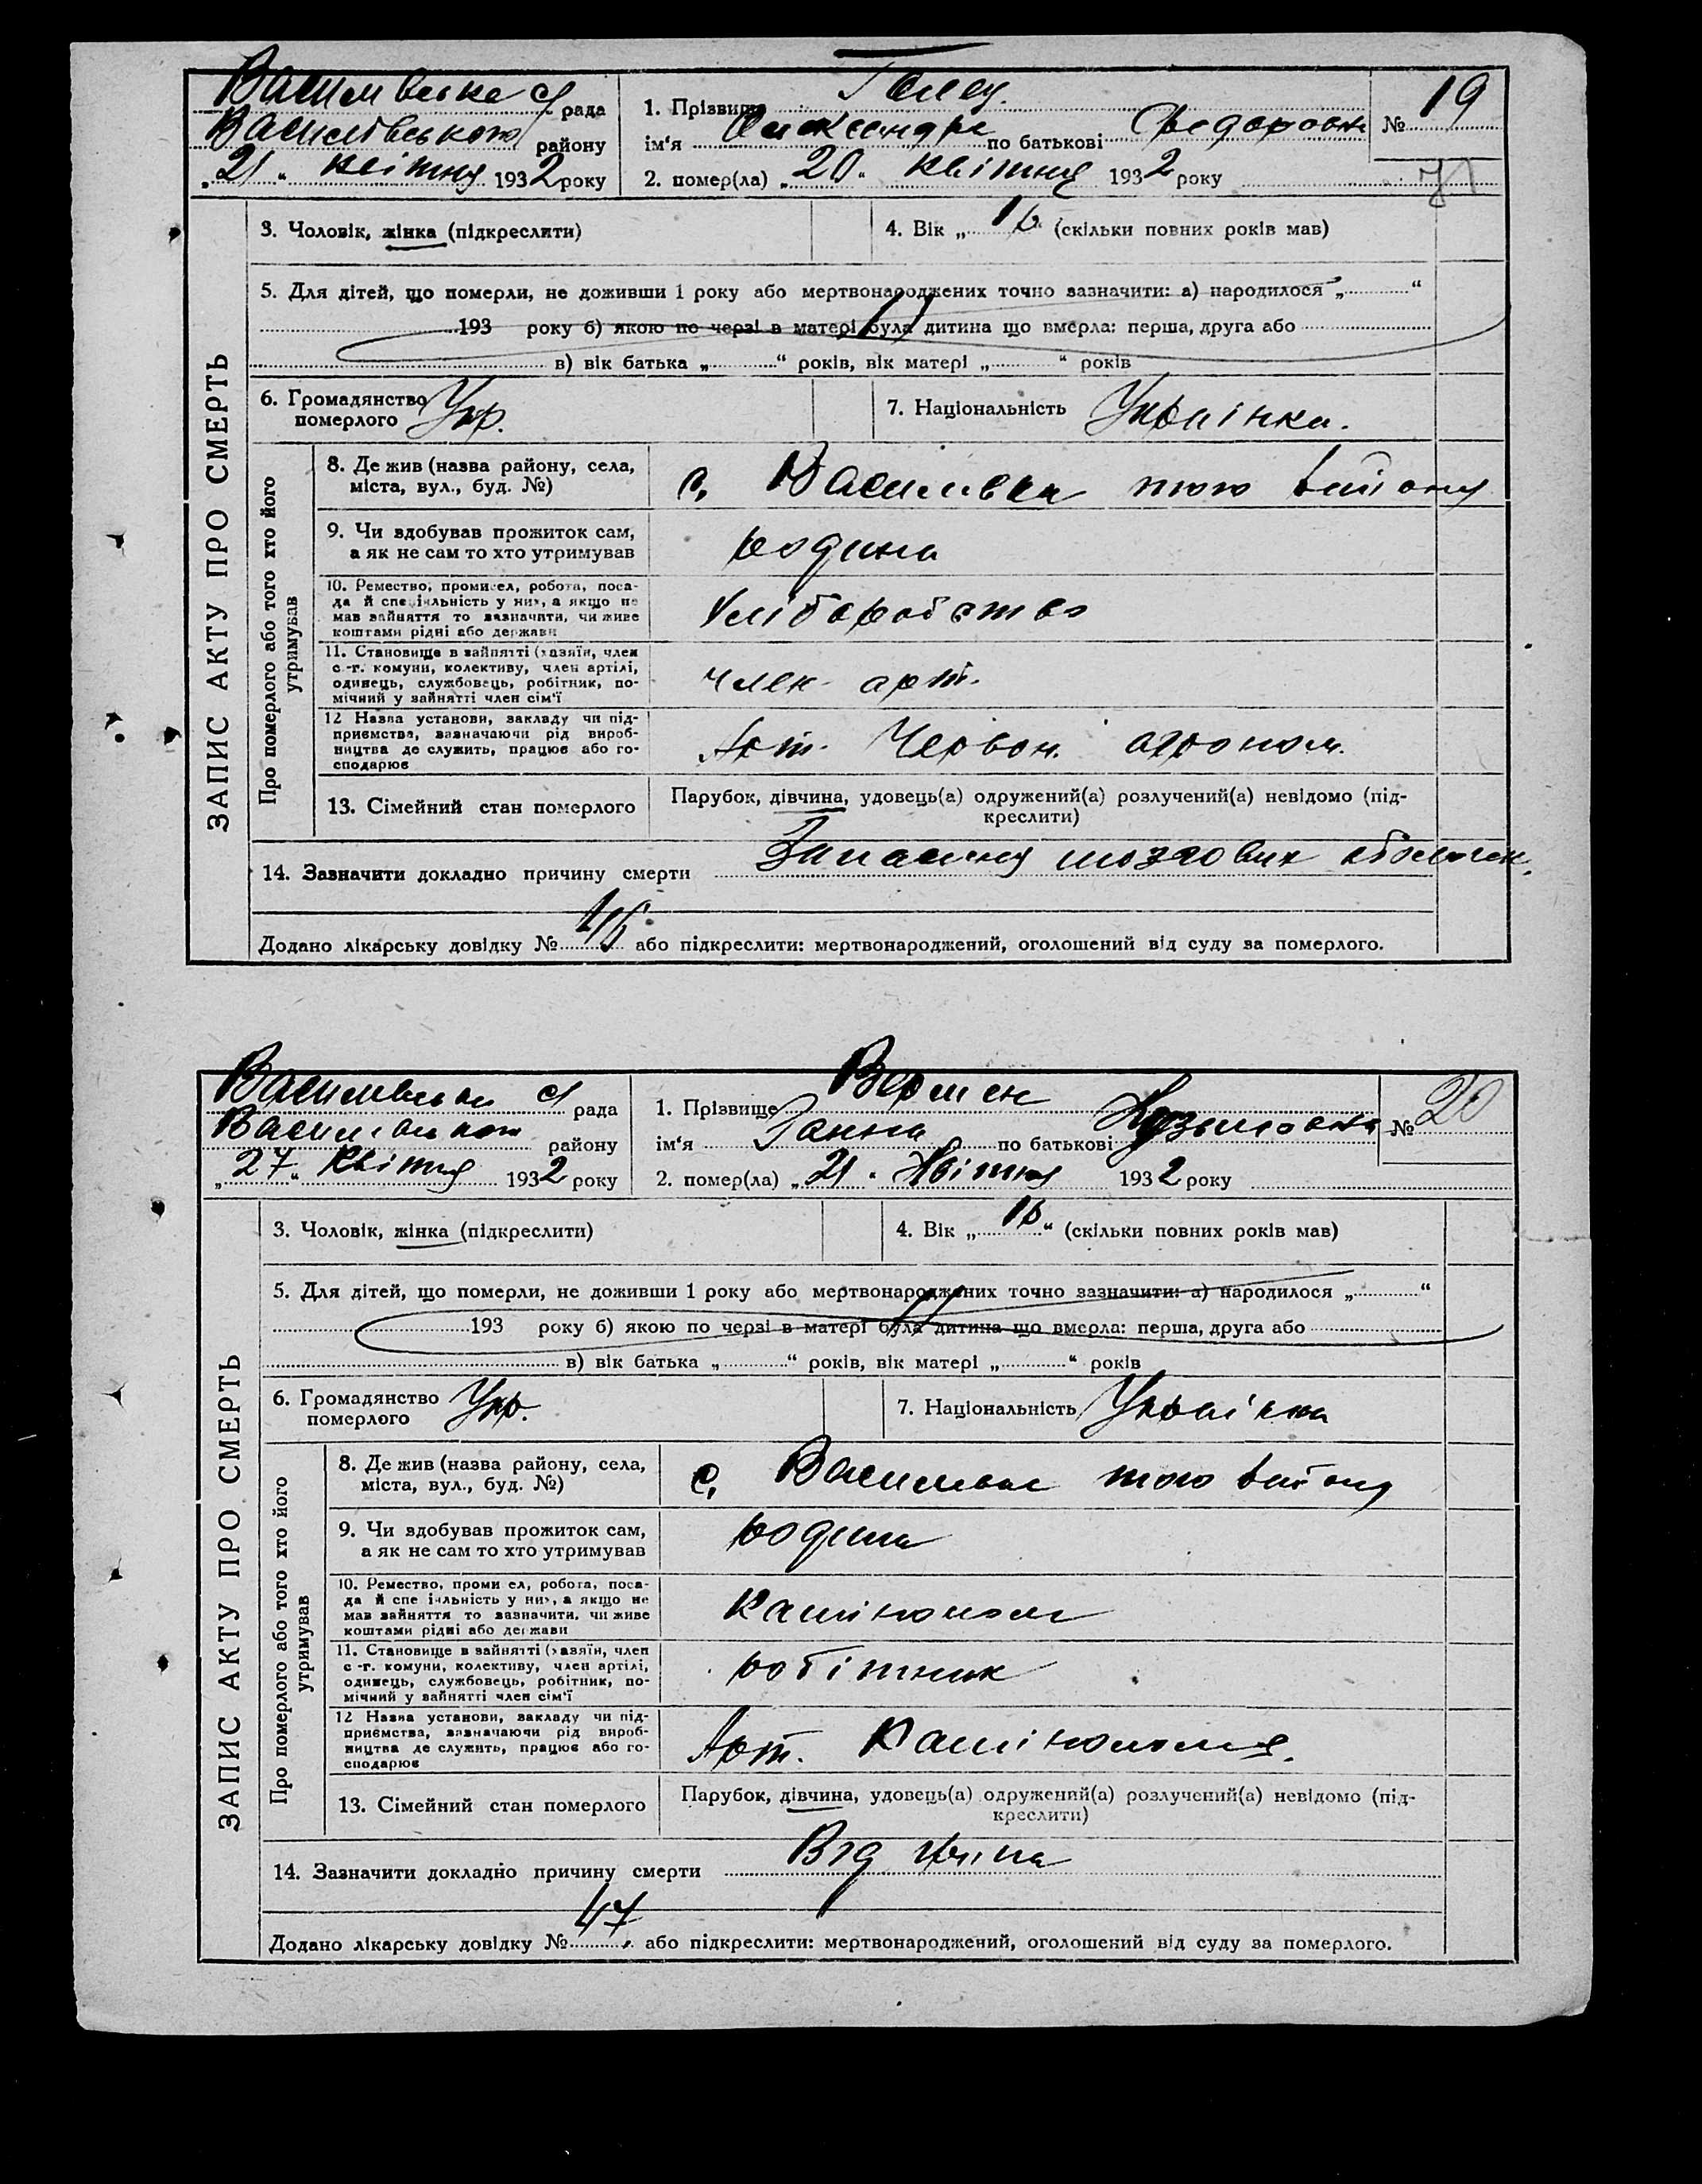 Василівська с/рада
Василівського району
„21“ квітня 1932 року
1. Прізвище Голец
ім‘я Олександра по батькові Федоровн
№ 19
2. помер(ла) „20“ квітня 1932 року
ЗАПИС АКТУ ПРО СМЕРТЬ
3. Чоловік, жінка (підкреслити)
4. Вік „1р.“ (скільки повних років мав)
5. Для дітей, що померли, не доживши 1 року або мертвонароджених точно зазначити: а) народилося „ “
193 року б) якою по черзі в матері була дитина що вмерла: перша, друга або
в) вік батька „ “ років, вік матері „ “ років
6. Громадянство померлого Укр.
7. Національність Українка.
Про померлого або того хто його утримував
8. Де жив (назва району, села,
міста, вул., буд. №)
с. Василівка того району
9. Чи здобував прожиток сам,
а як не сам то хто утримував
родина
10. Ремество, промисел, робота, поса-
да й спеціяльність у них, а якщо не
мав зайняття то зазначити, чи живе
коштами рідні або держави
хліборобство
11. Становище в зайнятті (хазяїн, член
с.-г. комуни, колективу, член артілі,
одинець, службовець, робітник, по-
мічний у зайнятті член сім‘ї
член арт.
12 Назва установи, закладу чи під-
приємства, зазначаючи рід вироб-
ництва де служить, працює або го-
сподарює
Арт. Червон. агроном.
13. Сімейний стан померлого
Парубок, дівчина, удовець(а) одружений(а) розлучений(а) невідомо (під-
креслити)
14. Зазначити докладно причину смерти Запаленя мозгових оболочек.
Додано лікарську довідку № 46 або підкреслити: мертвонароджений, оголошений від суду за померлого.
Василівська с/рада
Василівського району
„27“ квітня 1932 року
1. Прізвище
ім‘я Ганна по батькові Кузьмовна
№ 20
2. помер(ла) „21“ квітня 1932 року
ЗАПИС АКТУ ПРО СМЕРТЬ
3. Чоловік, жінка (підкреслити)
4. Вік „1р.“ (скільки повних років мав)
5. Для дітей, що померли, не доживши 1 року або мертвонароджених точно зазначити: а) народилося „ “
193 року б) якою по черзі в матері була дитина що вмерла: перша, друга або
в) вік батька „ “ років, вік матері „ “ років
6. Громадянство померлого Укр.
7. Національність Українка
Про померлого або того хто його утримував
8. Де жив (назва району, села,
міста, вул., буд. №)
с. Василівка того району
9. Чи здобував прожиток сам,
а як не сам то хто утримував
родина
10. Ремество, промисел, робота, поса-
да й спеціяльність у них, а якщо не
мав зайняття то зазначити, чи живе
коштами рідні або держави
Каміноломг
11. Становище в зайнятті (хазяїн, член
с-г. комуни, колективу, член артілі,
одинець, службовець, робітник, по-
мічний у зайнятті член сім‘ї
робітник
12 Назва установи, закладу чи під-
приємства, зазначаючи рід вироб-
ництва де служить, працює або го-
сподарює
Арт. Каміноломня.
13. Сімейний стан померлого
Парубок, дівчина, удовець(а) одружений(а) розлучений(а) невідомо (під-
креслити)
14. Зазначити докладно причину смерти Від
Додано лікарську довідку № 47 або підкреслити: мертвонароджений, оголошений від суду за померлого.